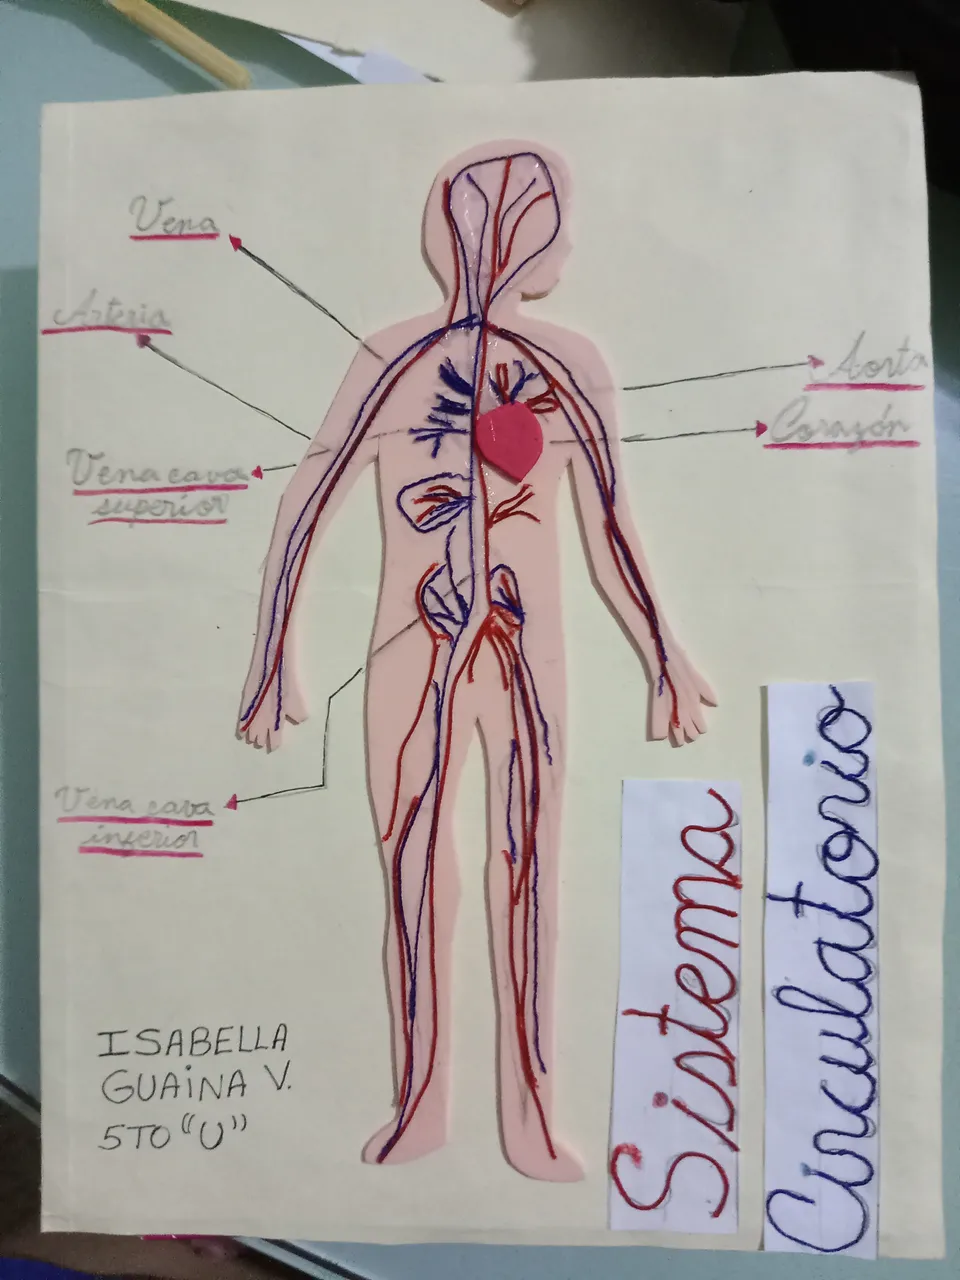 Vena
Arteria
Vena cava
superior
Vena cava
inferior
Aorta
Corazón
Sistema
Circulatorio
ISABELLA
GUAINA V.
5TO "U"